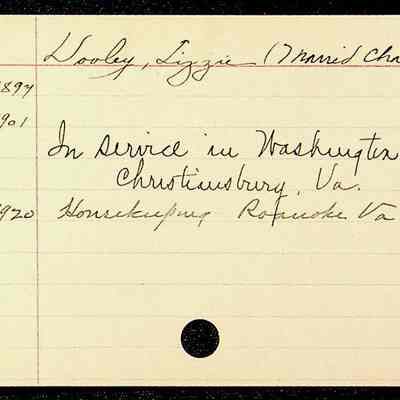 Dooley, Lizzie (Married Cha
1897
1901
In service in Washington
Christiansburg, Va.
1920 Housekeeping Roanoke Va